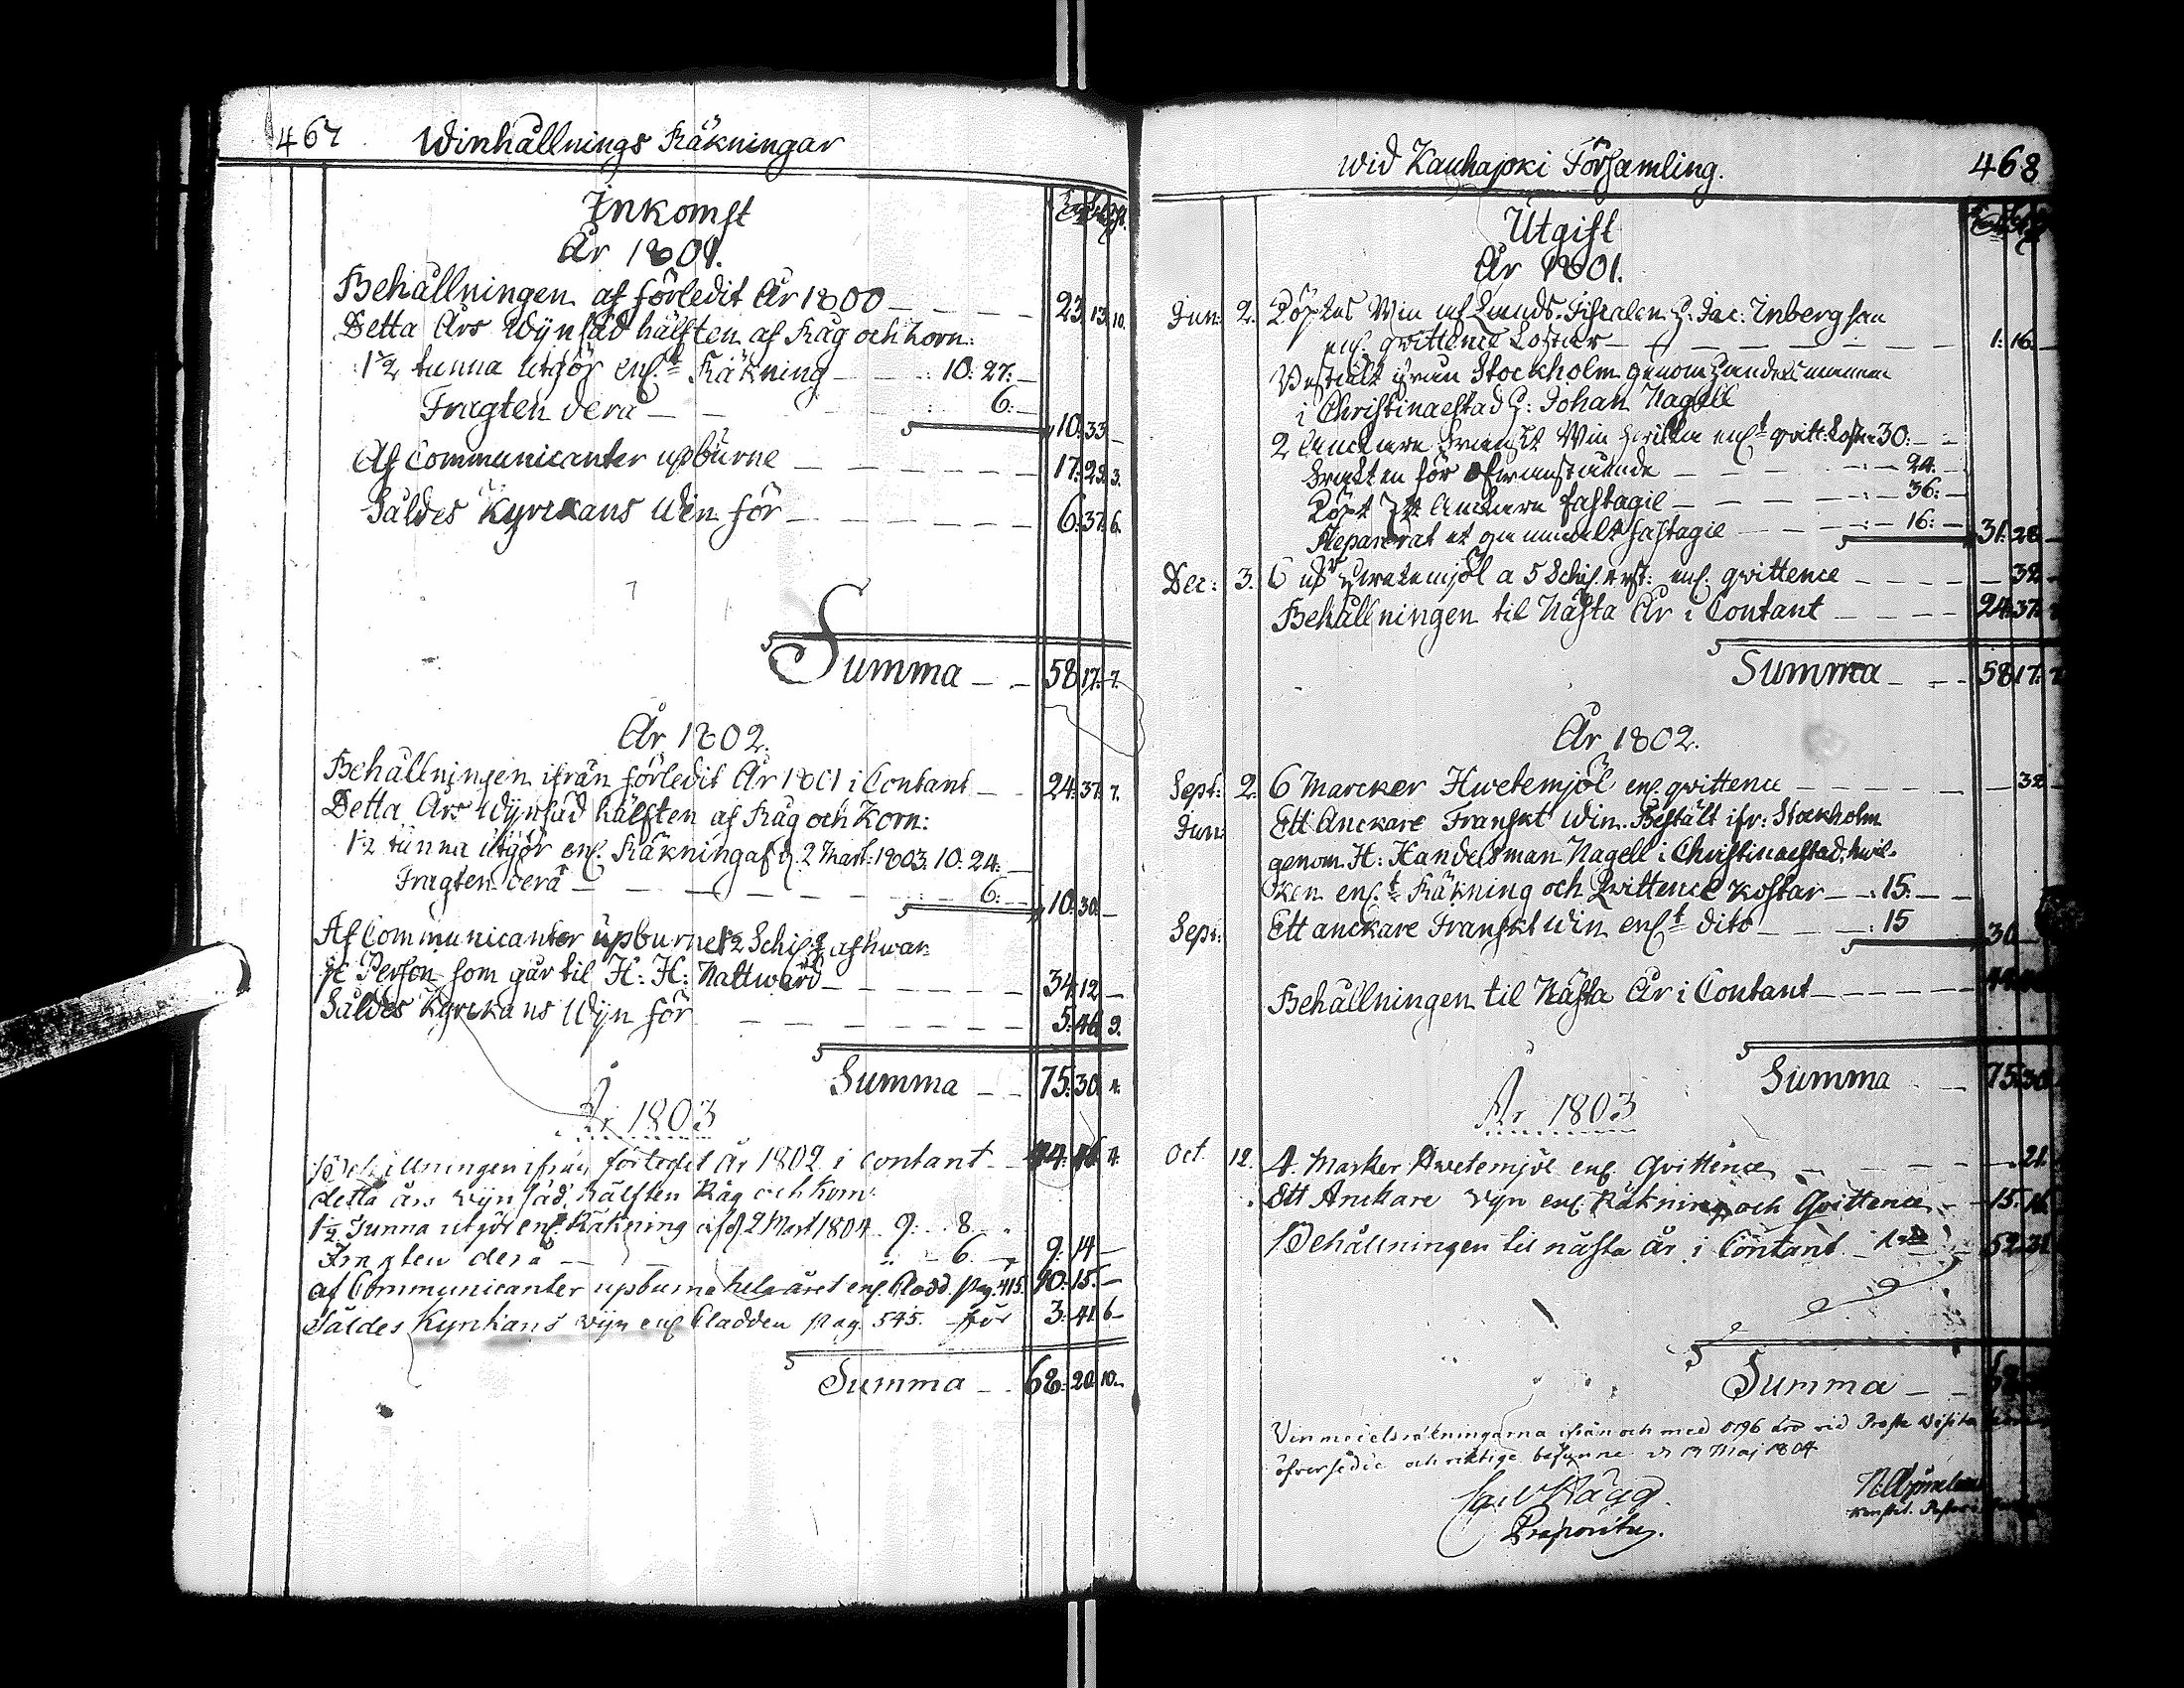 467. Winhållnings Räkningar
Inkomst
År 1801.
Behållningen af förledit År 1800 — 23. 13. 10.
Detta Års Wynsäd hälften af Råg och Korn:
1 1/2 tunna utgör enl.t Räkning — 10: 27: —
Fragten derå — 6: —
10: 33. —
Af Communicanter upburne — 17: 23. 3.
Såldes Kyrckans Win för — 6: 37. 6.
Summa — 58. 17. 7.
År 1802.
Behållningen ifrån förledit År 1801 i Contant — 24: 37. 7.
Detta Års Wynsäd hälften af Råg och Korn:
1 1/2 tunna utgör enl. Räkning af d. 2 Mart: 1803. 10: 24: —
Fragten derå — 6: —
10: 30. —
Af Communicanter upburne 1/2 Schil:g af hwar
je Person som går til H: H: Nattward — 34. 12. —
Såldes Kyrckans Wyn för — 5: 46. 9.
Summa — 75: 30. 4.
År 1803
Behållningen ifrån förledet År 1802 i Contant — 44. 46. 4.
detta års wyn säd, hälften Råg och Korn:
1 1/2 Tunna utgör enl. Räkning af d. 2 Mart 1804. 9: 8
Fragten derå — 6. —
9: 14 —
af Communicanter upburne hela året enl. Cladd. pag. 415. 10: 15. —
Såldes Kyrkans wyn enl Cladden pag. 545. för 3: 41. 6
Summa — 68: 20. 10.
wid Kauhajoki Församling. 468
Utgift
År 1801.
Jun: 2. Köptes Win af Lands-Fiscalen H. Jac: Inberg som
enl. qvittence kostar — 1: 16. —
Beställt ifrån Stockholm genom Handelsmannen
i Christinaestad H: Johan Nagell
2 Anckare Franskt Win hwilka enl.t qvitt: kosta 30: —
Frakten för ofwanstående — 24. —
Köpt Ett Anckare fastagie — 36: —
Reparerat et gammalt fastagie — 16: — 31: 28 —
Dec: 3. 6 Hwetemjöl a 5 Schil. enl. qwittence — 32 —
Behållningen til Nästa År i Contant — 24. 37.
Summa — 58. 17. 7.
År 1802.
Sept: 2. 6 Marcker Hwetemjöl enl. qvittence — 32 —
Jun: Ett Anckare Franskt Win. Bestält ifr: Stockholm
genom H: Handelsman Nagell i Christinaestad, hwil-
ken enl.t Räkning och Qvittence kostar — 15: —
Sept: Ett anckare Franskt win enl.t dito — 15 30 —
Behållningen til Nästa År i Contant —
Summa — 75. 30.
År 1803
Oct. 12. 4. Marker Hwetemjöl enl. Qvittence — 21.
Ett Anckare Wyn enl. Räkning och Qvittence — 15. 16.
Behållningen til nästa år i Contant — 52. 31
Summa —
öfversedde och riktige befunne d. 17 Maj 1804
Præpositus.